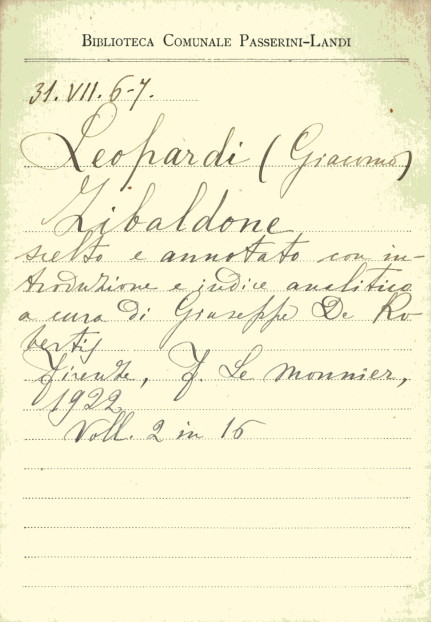 BIBLIOTECA COMUNALE PASSERINI-LANDI
31. VII. 6-7.
Leopardi (Giacomo)
Zibaldone
scelto e annotato con in-
troduzione e indice analitico
a cura di Giuseppe De Ro
bertis
Firenze, F. Le Monnier,
1922
Voll. 2 in 16